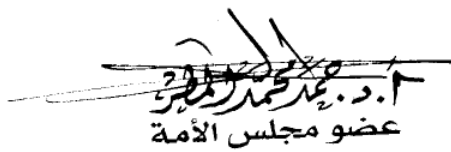 أ.د. حمد محمد المطر
عضو مجلس الأمة